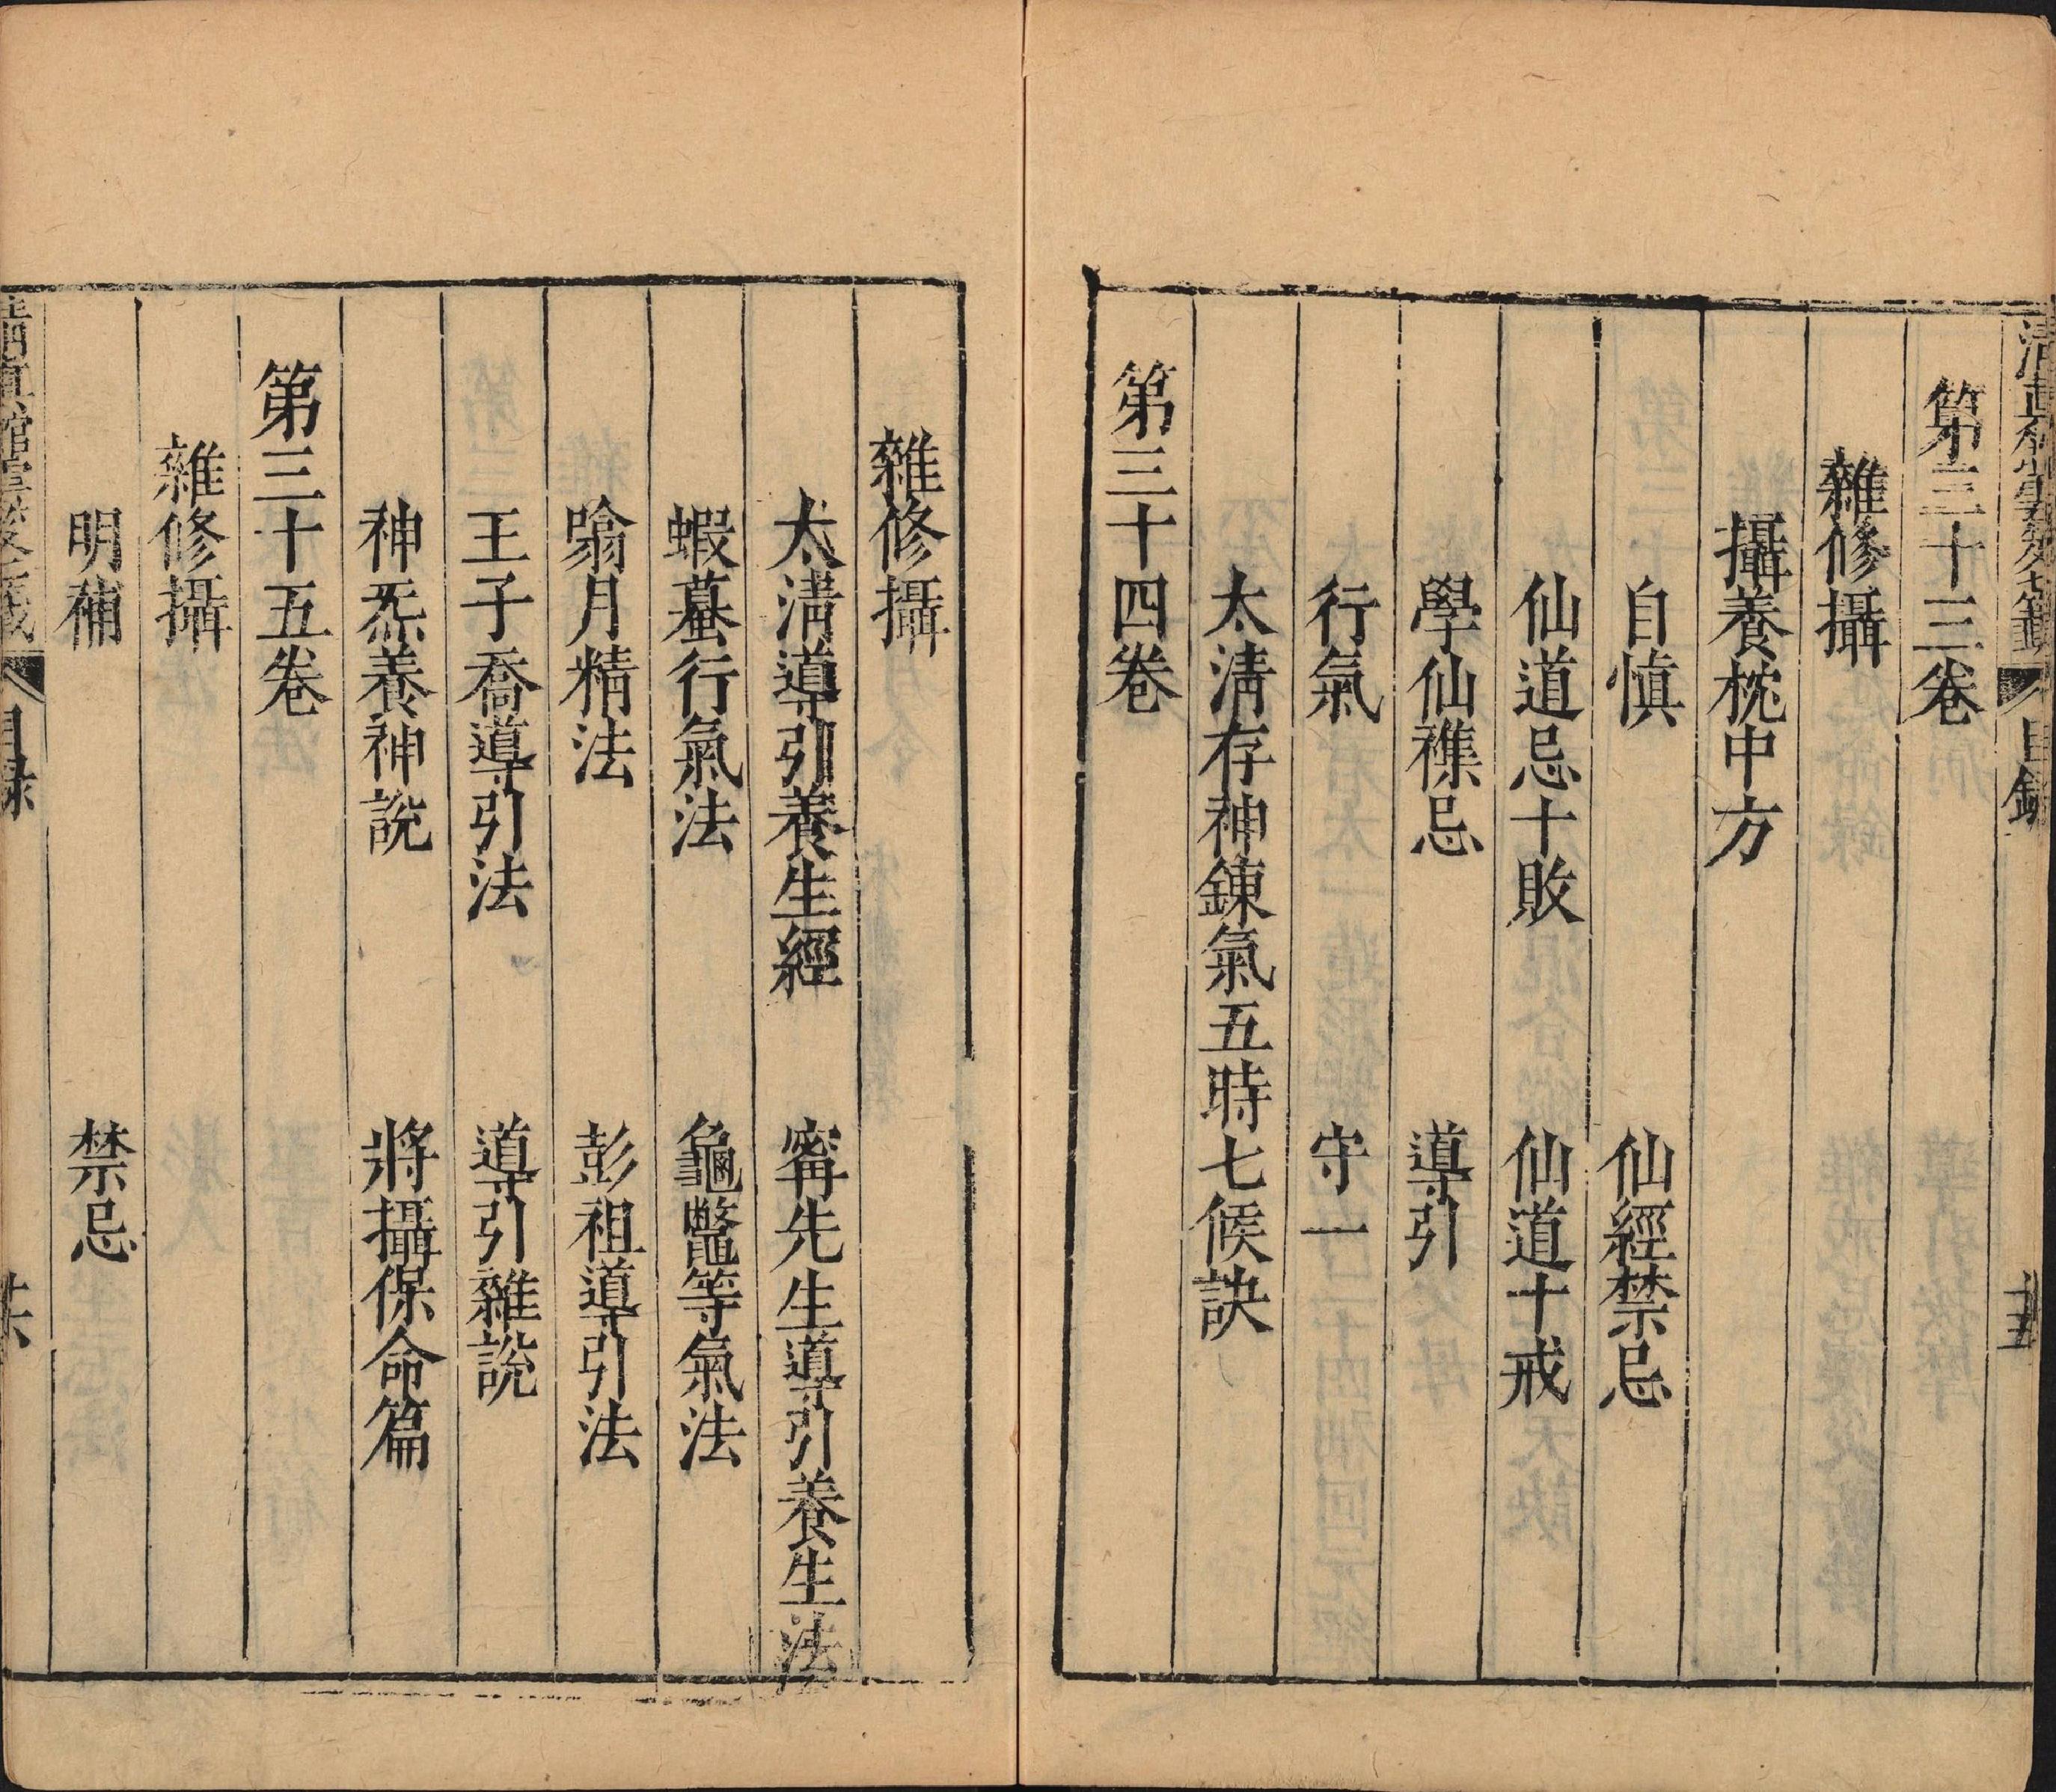 清真館雲笈七籤 目錄 十五
第三十三卷
雜修攝
攝養枕中方
自慎 仙經禁忌
仙道忌十敗 仙道十戒
學仙襍忌 導引
行氣 守一
太淸存神鍊氣五時七候訣
第三十四卷
雜修攝
太淸導引養生經 甯先生導引養生法
蝦蟇行氣法 龜鼈等氣法
噏月精法 彭祖導引法
王子喬導引法 導引雜說
神炁養神說 將攝保命篇
第三十五卷
雜修攝
明補 禁忌
清真館雲笈七籤 目録